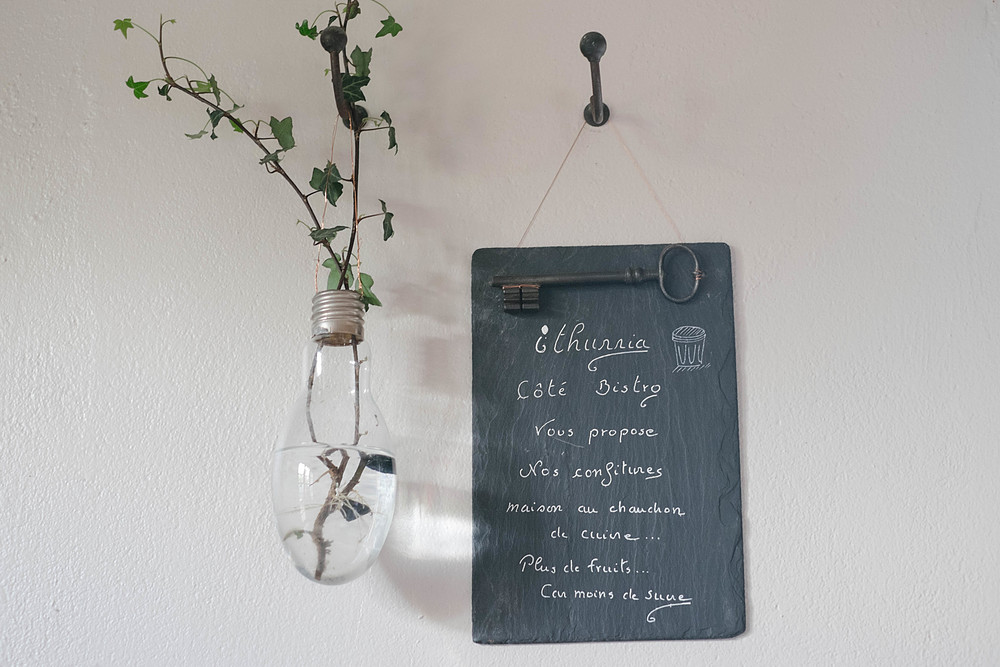 ithurria
Côté Bistro
Vous propose
Nos confitures
maison au chaudron
de cuivre...
Plus de fruits...
Car moins de sucre